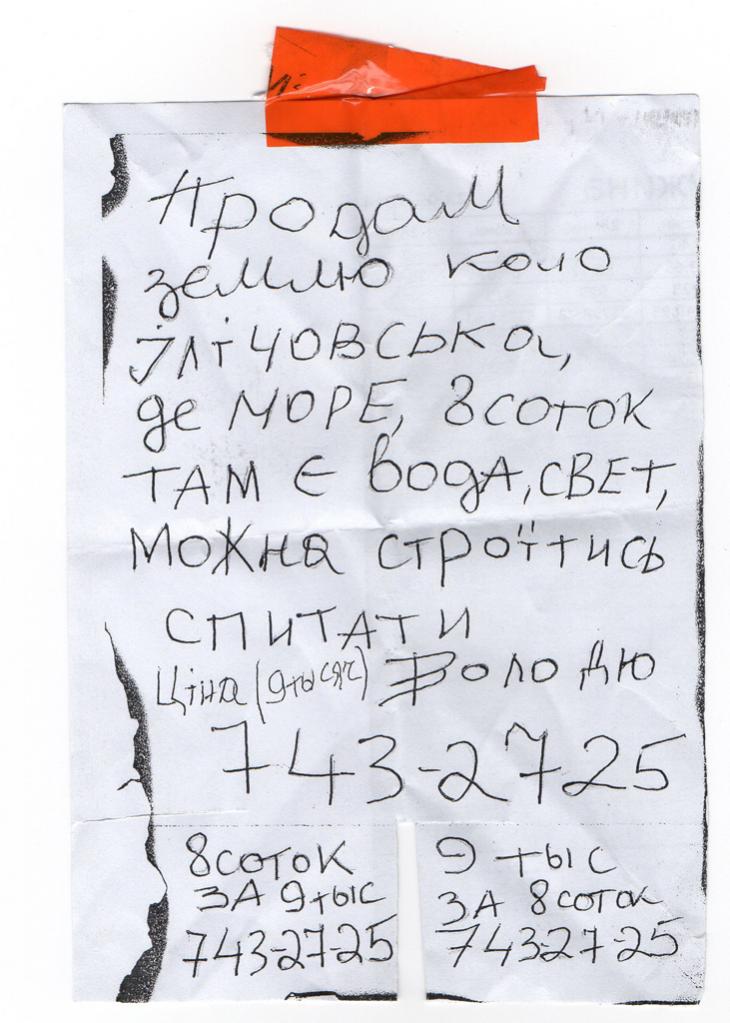 Продам
землю коло
Ілічовська,
де МОРЕ, 8 соток
ТАМ Є вода, СВЕТ,
МОЖНА строїтись
СПИТАТИ
Ціна (9 тысяч) Володю
743-2725
8 соток
ЗА 9 тыс
743-27-25
9 тыс
ЗА 8 соток
743-27-25